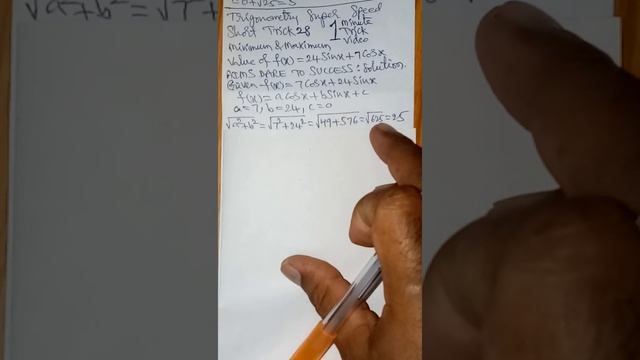 =0+√25=5
Trigonometry Super Speed
Short Trick 28 1 Minute Trick Video
Minimum & Maximum
Value of f(x) = 24 Sinx + 7 Cosx
ADMS DARE TO SUCCESS: Solution.
Given f(x) = 7 Cosx + 24 Sinx
f(x) = a Cosx + b Sinx + c
a = 7, b = 24, c = 0
√a²+b² = √7²+24² = √49+576 = √625 = 25